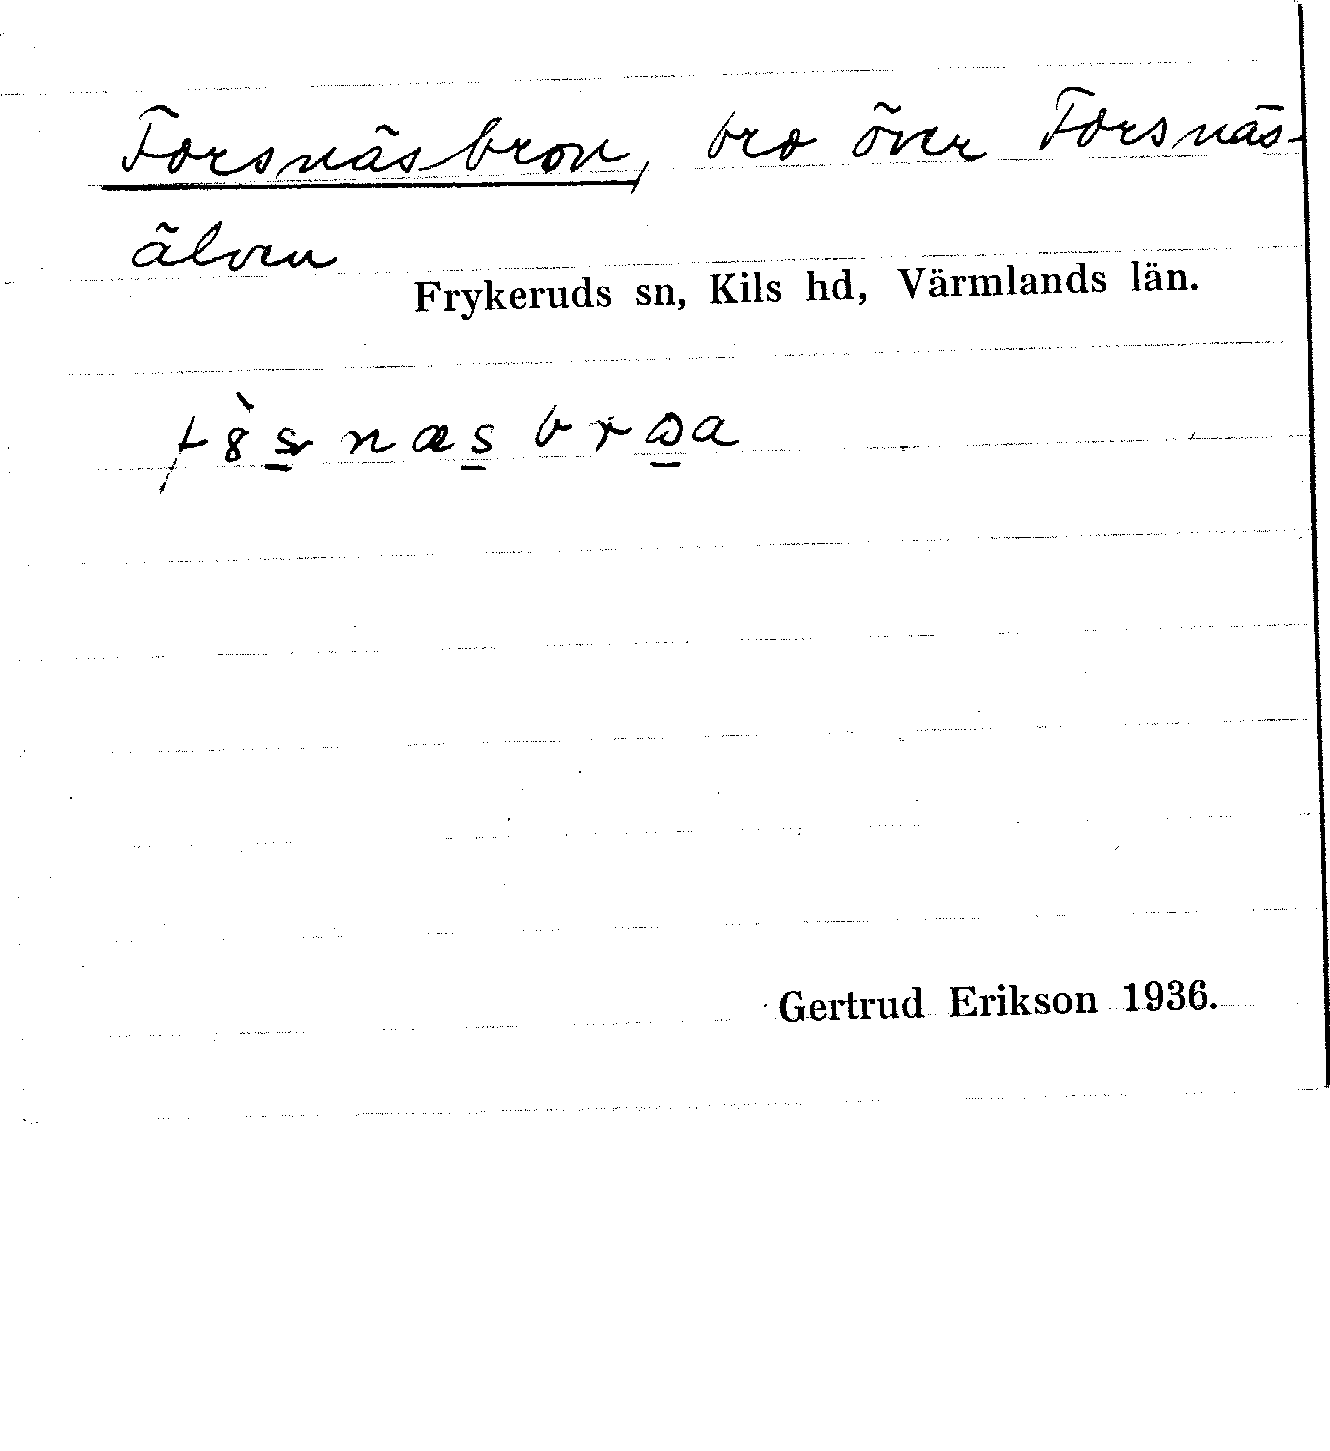 Forsnäsbron, bro över Forsnäs-
älven
Frykeruds sn, Kils hd, Värmlands län.
Gertrud Erikson 1936.